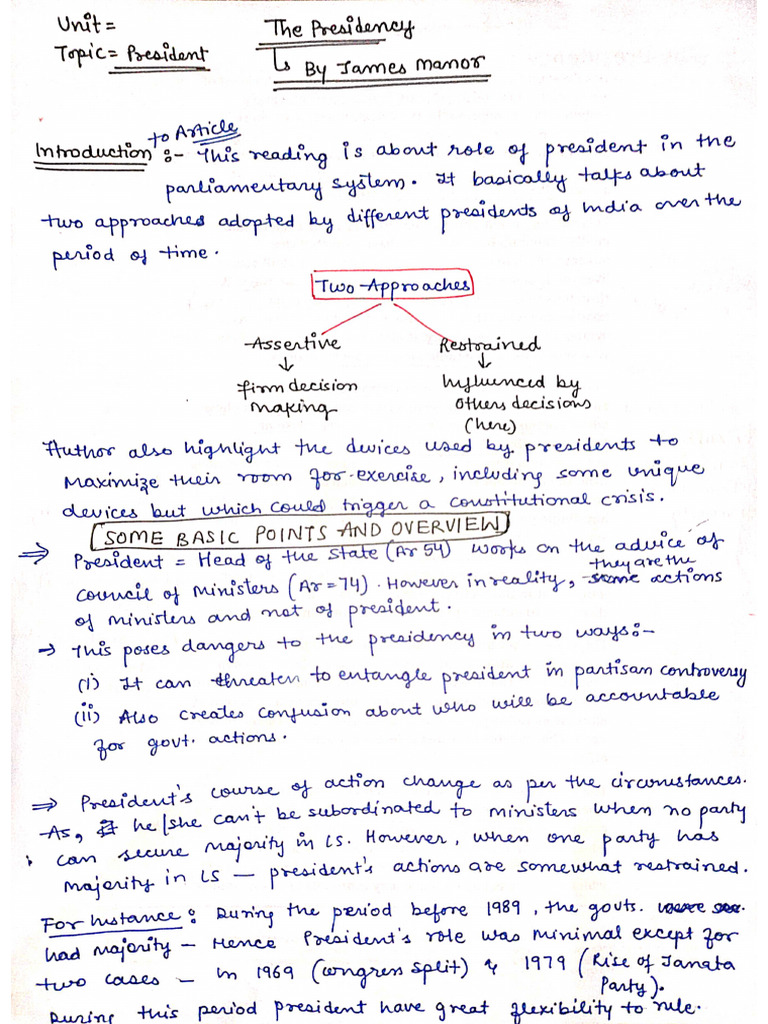 Unit =
The Presidency
Topic = President
↳ By James Manor
to Article
Introduction :- This reading is about role of president in the
parliamentary system. It basically talks about
two approaches adopted by different presidents of India over the
period of time.
Two Approaches
Assertive
Restrained
↓
↓
firm decision
making
Influenced by
others decisions
(here)
Author also highlight the devices used by presidents to
Maximize their room for exercise, including some unique
devices but which could trigger a constitutional crisis.
SOME BASIC POINTS AND OVERVIEW
⇒ President = Head of the state (Ar 54) works on the advice of
council of ministers (Ar = 74). However in reality, they are the actions
of ministers and not of president.
→ This poses dangers to the presidency in two ways:-
(i) It can threaten to entangle president in partisan controversy
(ii) Also creates confusion about who will be accountable
for govt. actions.
⇒ President's course of action change as per the circumstances.
As, he/she can't be subordinated to ministers when no party
can secure majority in LS. However, when one party has
majority in LS — president's actions are somewhat restrained.
For Instance : During the period before 1989, the govts.
had majority – Hence President's role was minimal except for
two cases – in 1969 (congress split) & 1979 (Rise of Janata
Party).
During this period president have great flexibility to rule.